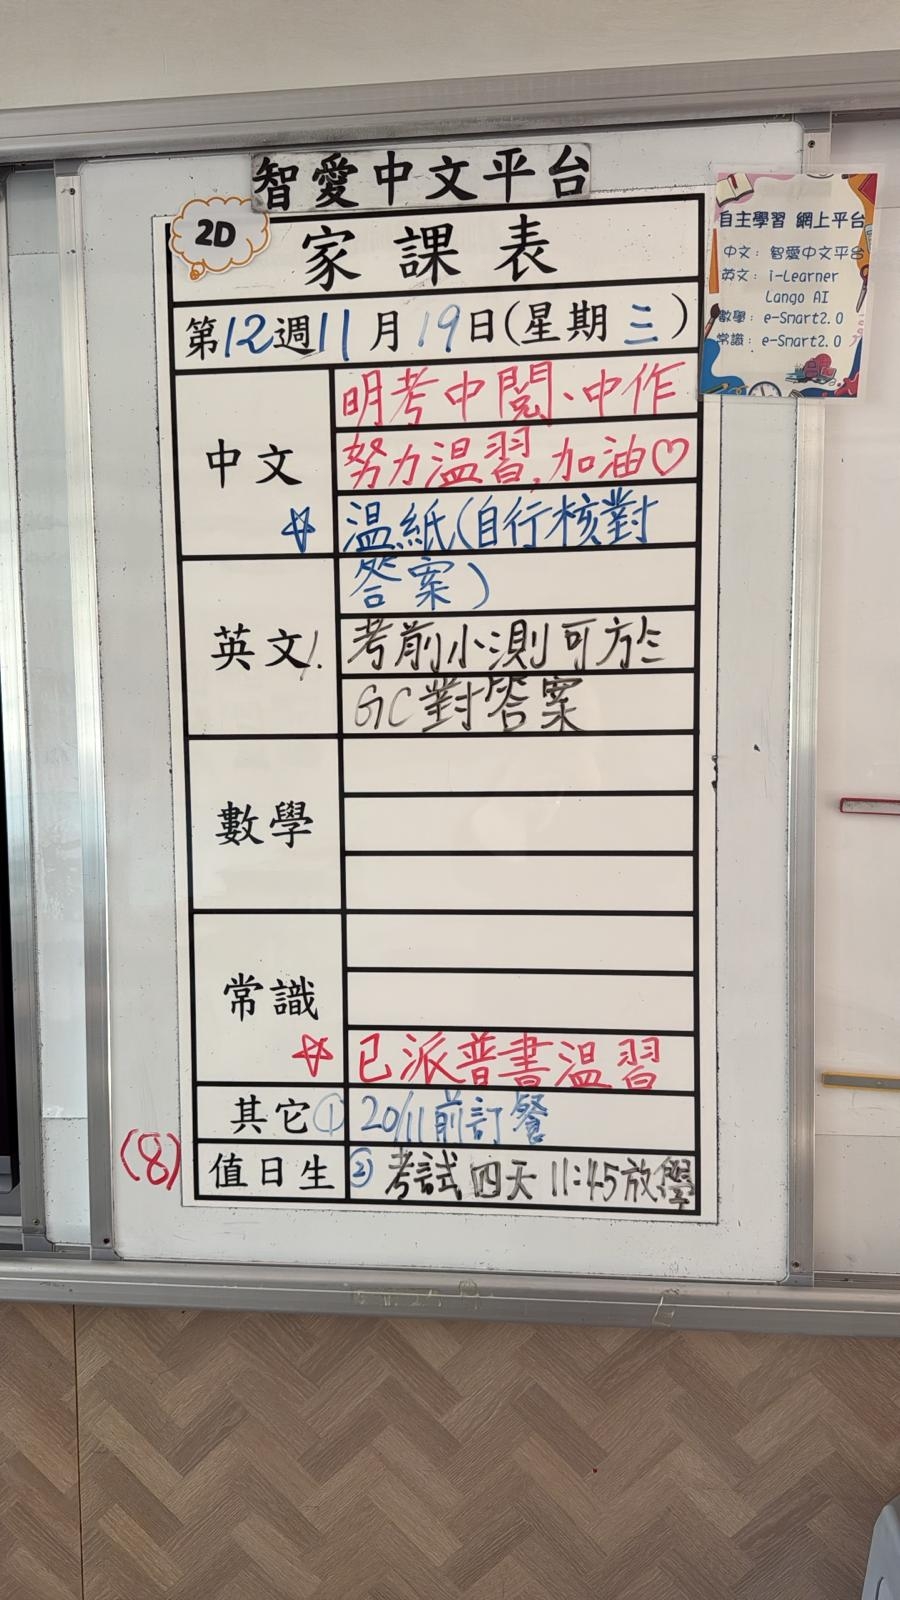 智愛中文平台
2D
家課表
第12週11月19日(星期三)
中文
明考中閱、中作
努力温習,加油♡
☆ 温紙(自行核對
答案)
英文
1. 考前小測可於
GC對答案
數學
常識
☆ 已派普書温習
其它 ① 20/11前訂餐
(8)
值日生 ② 考試四天11:45放學
自主學習 網上平台
中文: 智愛中文平台
英文: i-Learner
Lango AI
數學: e-Smart2.0
常識: e-Smart2.0